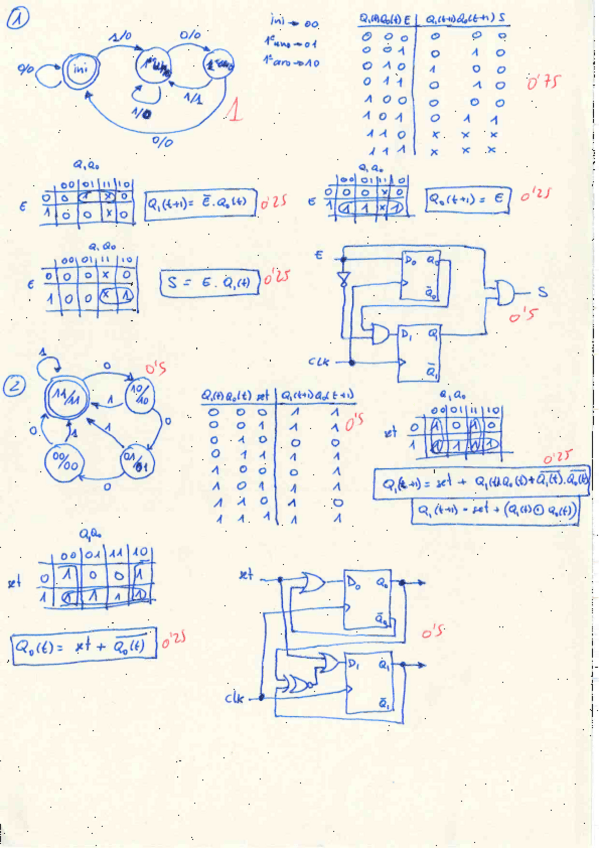 1
ini → 00
1er uno → 01
1er cero → 10
0/0
ini
1/0
0/0
1/0
1/1
0/0
1
Q1(t) Q0(t) E | Q1(t+1) Q0(t+1) S
0 0 0 | 0 0 0
0 0 1 | 0 1 0
0 1 0 | 1 0 0
0 1 1 | 0 1 0
1 0 0 | 0 0 0
1 0 1 | 0 1 1
1 1 0 | x x x
1 1 1 | x x x
0'75
Q1Q0
00 01 11 10
E
0 0 1 x 0
1 0 0 x 0
Q1(t+1) = E̅ . Q0(t)
0'25
Q1Q0
00 01 11 10
E
0 0 0 x 0
1 1 1 x 1
Q0(t+1) = E
0'25
Q1Q0
00 01 11 10
E
0 0 0 x 0
1 0 0 x 1
S = E . Q1(t)
0'25
E
D0 Q0
Q̅0
D1 Q1
Q̅1
CLK
S
0'5
2
1
0
11/11
10/10
1
0'5
0
1
1
0
00/00
01/01
0
Q1(t) Q0(t) set | Q1(t+1) Q0(t+1)
0 0 0 | 1 1
0 0 1 | 1 1
0 1 0 | 0 0
0 1 1 | 1 1
1 0 0 | 0 1
1 0 1 | 1 1
1 1 0 | 1 0
1 1 1 | 1 1
0'5
Q1Q0
00 01 11 10
set
0 1 0 1 0
1 1 1 1 1
0'25
Q1(t+1) = set + Q1(t).Q0(t) + Q̅1(t).Q̅0(t)
Q1(t+1) = set + (Q1(t) ⊙ Q0(t))
Q1Q0
00 01 11 10
set
0 1 0 0 1
1 1 1 1 1
Q0(t) = set + Q̅0(t)
0'25
set
D0 Q0
Q̅0
D1 Q1
Q̅1
CLK
0'5